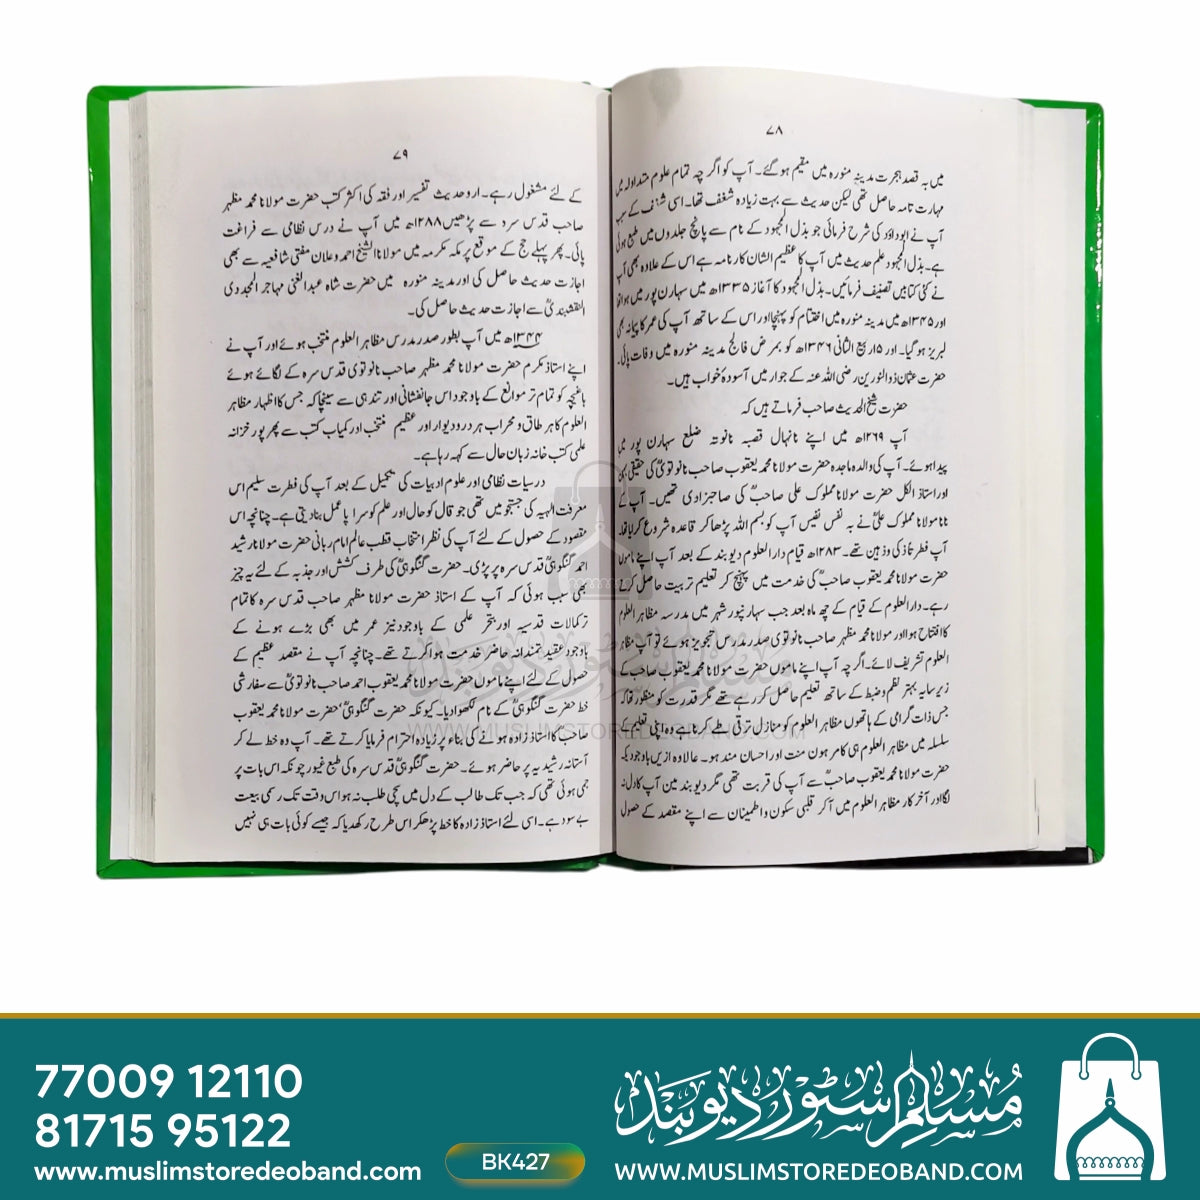 ۷۸
میں بہ قصد ہجرت مدینہ منورہ میں مقیم ہو گئے۔ آپ کو اگر چہ تمام علوم متداولہ میں
مہارت تامہ حاصل تھی لیکن حدیث سے بہت زیادہ شغف تھا۔ اسی شغف کے سبب
آپ نے ابوداؤد کی شرح فرمائی جو بذل المجہود کے نام سے پانچ جلدوں میں طبع ہوئی
ہے۔ بذل المجہود علم حدیث میں آپ کا عظیم الشان کارنامہ ہے اس کے علاوہ بھی آپ
نے کئی کتابیں تصنیف فرمائیں۔ بذل المجہود کا آغاز ۱۳۳۵ھ میں سہارن پور میں ہوا تھا
اور ۱۳۴۵ھ میں مدینہ منورہ میں اختتام کو پہنچا اور اس کے ساتھ آپ کی عمر کا پیمانہ بھی
لبریز ہو گیا۔ اور ۱۵ ربیع الثانی ۱۳۴۶ھ کو بمرض فالج مدینہ منورہ میں وفات پائی۔
حضرت عثمان ذوالنورین رضی اللہ عنہ کے جوار میں آسودۂ خواب ہیں۔
حضرت شیخ الحدیث صاحب فرماتے ہیں کہ
آپ ۱۲۶۹ھ میں اپنے نانہال قصبہ نانوتہ ضلع سہارن پور میں
پیدا ہوئے۔ آپ کی والدہ ماجدہ حضرت مولانا محمد یعقوب صاحب نانوتویؒ کی حقیقی بہن
اور استاذ الکل حضرت مولانا مملوک علی صاحبؒ کی صاحبزادی تھیں۔ آپ کے
نانا مولانا مملوک علیؒ نے بہ نفس نفیس آپ کو بسم اللہ پڑھا کر قاعدہ شروع کرایا تھا۔
آپ فطرتاً ذکی و ذہین تھے۔ ۱۲۸۳ھ قیام دارالعلوم دیوبند کے بعد آپ اپنے ماموں
حضرت مولانا محمد یعقوب صاحبؒ کی خدمت میں پہنچ کر تعلیم تربیت حاصل کرتے
رہے۔ دارالعلوم کے قیام کے چھ ماہ بعد جب سہارنپور شہر میں مدرسہ مظاہر العلوم
کا افتتاح ہوا اور مولانا محمد مظہر صاحب نانوتوی صدر مدرس تجویز ہوئے تو آپ مظاہر
العلوم تشریف لائے۔ اگر چہ آپ اپنے ماموں حضرت مولانا محمد یعقوب صاحب کے
زیر سایہ بہتر نظم و ضبط کے ساتھ تعلیم حاصل کر رہے تھے مگر قدرت کو منظور تھا کہ
جس ذات گرامی کے ہاتھوں مظاہر العلوم کو منازل ترقی طے کرنا ہے وہ اپنی تعلیم کے
سلسلہ میں مظاہر العلوم ہی کا مرہون منت اور احسان مند ہو۔ علاوہ ازیں باوجودیکہ
حضرت مولانا محمد یعقوب صاحبؒ سے آپ کی قربت تھی مگر دیوبند مین آپ کا دل نہ
لگا اور آخر کار مظاہر العلوم میں آکر قلبی سکون و اطمینان سے اپنے مقصد کے حصول
۷۹
کے لئے مشغول رہے۔ اردو حدیث تفسیر اور فقہ کی اکثر کتب حضرت مولانا محمد مظہر
صاحب قدس سرد سے پڑھیں ۱۲۸۸ھ میں آپ نے درس نظامی سے فراغت
پائی۔ پھر پہلے حج کے موقع پر مکہ مکرمہ میں مولانا الشیخ احمد دعلان مفتی شافعیہ سے بھی
اجازت حدیث حاصل کی اور مدینہ منورہ میں حضرت شاہ عبدالغنی مہاجر المجددی
النقشبندیؒ سے اجازت حدیث حاصل کی۔
۱۳۴۴ھ میں آپ بطور صدر مدرس مظاہر العلوم منتخب ہوئے اور آپ نے
اپنے استاذ مکرم حضرت مولانا محمد مظہر صاحب نانوتوی قدس سرہ کے لگائے ہوئے
باغیچہ کو تمام تر موانع کے باوجود اس جانفشانی اور تندہی سے سینچا کہ جس کا اظہار مظاہر
العلوم کا ہر طاق و محراب ہر درودیوار اور عظیم منتخب اور کمیاب کتب سے بھر پور خزانہ
علمی کتب خانہ زبان حال سے کہہ رہا ہے۔
درسیات نظامی اور علوم ادبیات کی تکمیل کے بعد آپ کی فطرت سلیم اس
معرفت الٰہیہ کی جستجو میں تھی جو قال کو حال اور علم کو سراپا عمل بنا دیتی ہے۔ چنانچہ اس
مقصود کے حصول کے لئے آپ کی نظر انتخاب قطب عالم امام ربانی حضرت مولانا رشید
احمد گنگوہیؒ قدس سرہ پر پڑی۔ حضرت گنگوہیؒ کی طرف کشش اور جذبہ کے لئے یہ چیز
بھی سبب ہوئی کہ آپ کے استاذ حضرت مولانا مظہر صاحب قدس سرہ کا تمام
تر کمالات قدسیہ اور تبحر علمی کے باوجود نیز عمر میں بھی بڑے ہونے کے
باوجود عقیدتمندانہ حاضر خدمت ہوا کرتے تھے۔ چنانچہ آپ نے مقصد عظیم کے
حصول کے لئے اپنے ماموں حضرت مولانا محمد یعقوب احمد صاحب نانوتویؒ سے سفارشی
خط حضرت گنگوہیؒ کے نام لکھوا دیا۔ کیونکہ حضرت گنگوہیؒ، حضرت مولانا محمد یعقوب
صاحبؒ کا استاذ زادہ ہونے کی بناء پر زیادہ احترام فرمایا کرتے تھے۔ آپ وہ خط لے کر
آستانہ رشیدیہ پر حاضر ہوئے۔ حضرت گنگوہیؒ قدس سرہ کی طبع غیور چونکہ اس بات پر
جمی ہوئی تھی کہ جب تک طالب کے دل میں سچی طلب نہ ہو اس وقت تک رسمی بیعت
بے سود ہے۔ اسی لئے استاذ زادہ کا خط پڑھکر اس طرح رکھ دیا کہ جیسے کوئی بات ہی نہیں
مسلم سٹور دیوبند
WWW.MUSLIMSTOREDEOBAND.COM
77009 12110
81715 95122
www.muslimstoredeoband.com
BK427
مسلم سٹور دیوبند
WWW.MUSLIMSTOREDEOBAND.COM